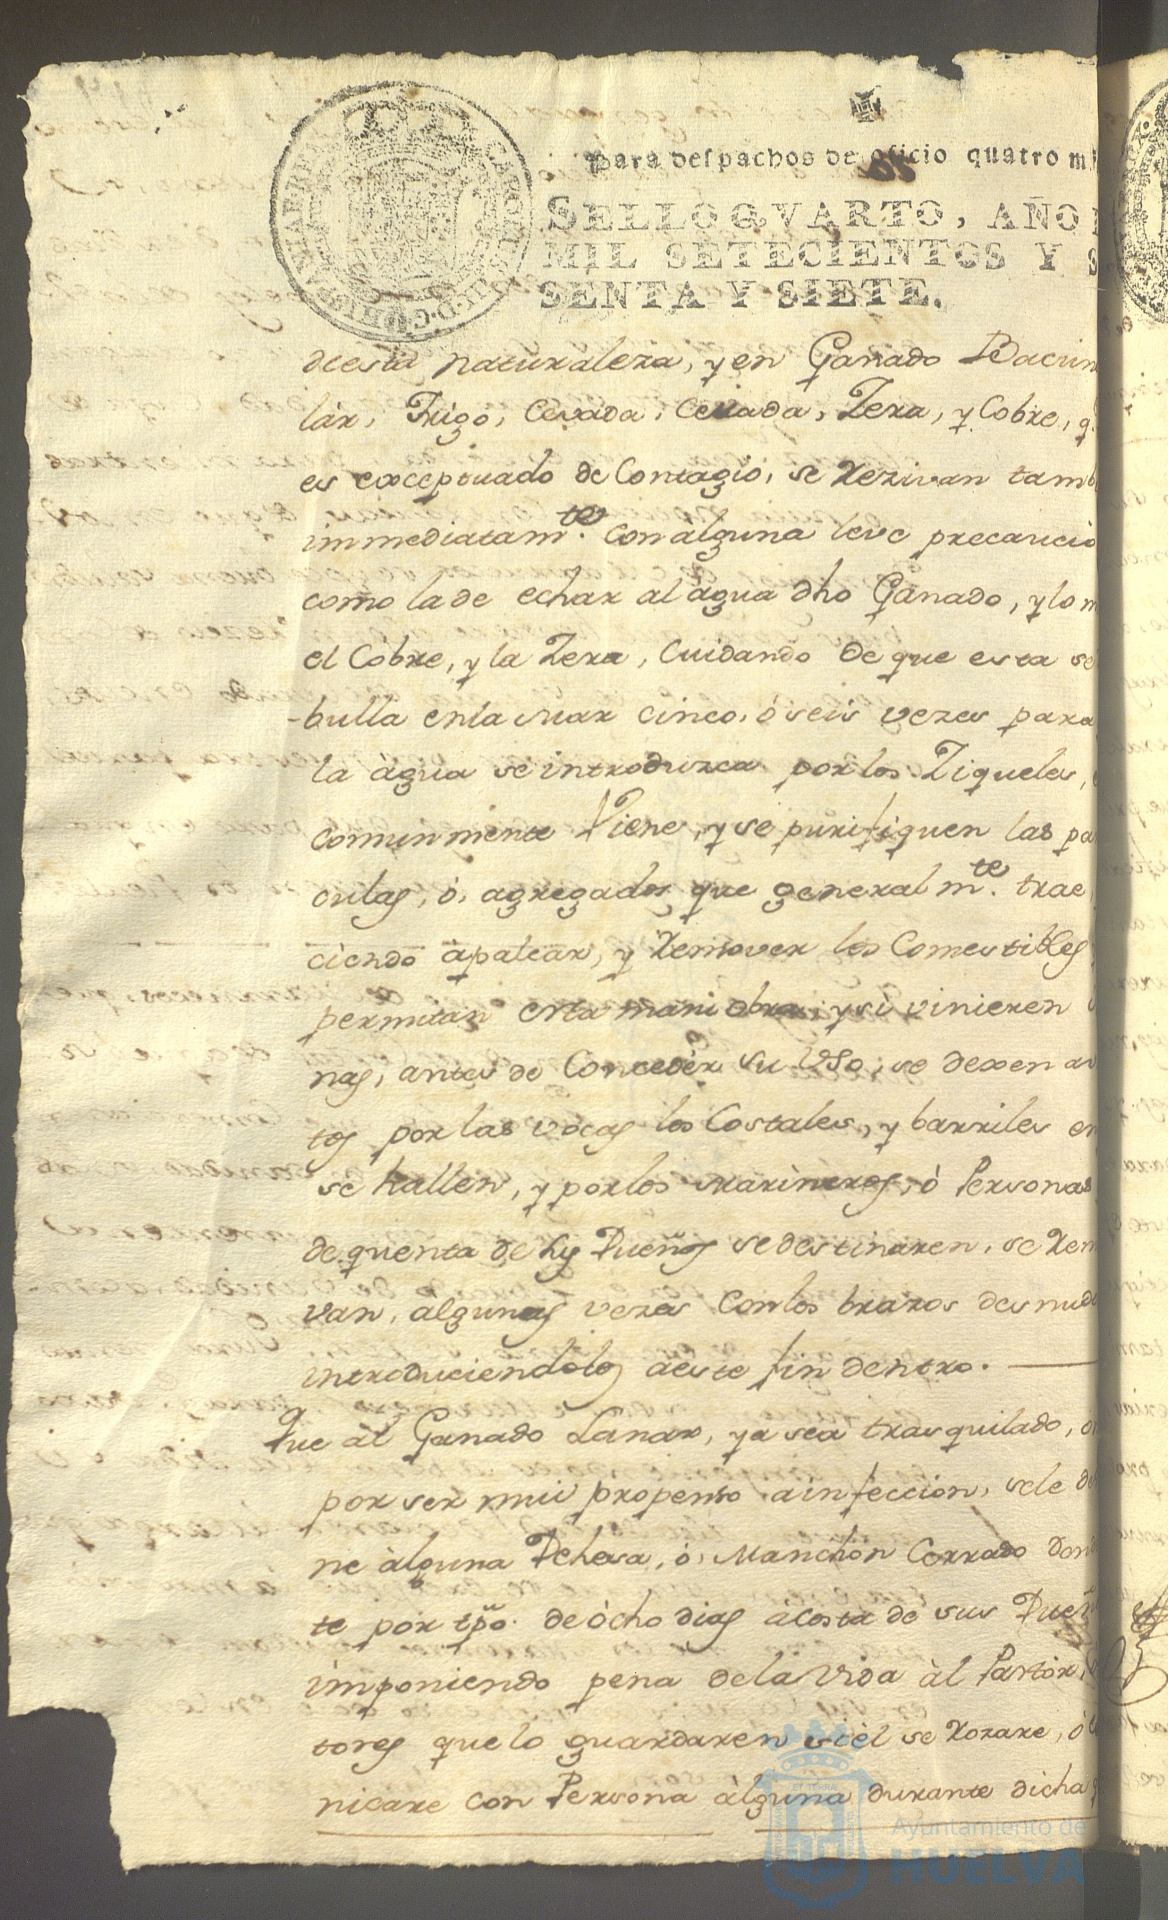 para despachos de oficio quatro m
SELLO QVARTO, AÑO
MIL SETECIENTOS Y S
SENTA Y SIETE.
CAROLUS III D G HISPANIAR REX
de esta naturaleza, y en Ganado Bacun
lár, Trigo, Cevada, Cevada, Zera, y Cobre, q
es exceptuado de Contagio, se Rezivan tamb
immediatam.te con alguna leve precaucio
como la de echar al agua dho Ganado, y lo m
el Cobre, y la Zera, Cuidando de que esta se
-bulla en la mar cinco, ó seis vezes para
la agua se introduzca por los Ziqueles,
comunmente Viene, y se purifiquen las pa
culas, ó, agregados que general m.te trae
ciendo apalear, y Remover los Comestibles
permitan esta maniobra, y si vinieren
nas, antes de Conceder su Uso, se dexen av
tos por las vocas los Costales, y barriles en
se hallen, y por los marineros, ó Personas
de quenta de los Dueños se destinaren, se Rem
van, algunas vezes Con los brazos desnud
introduciendolos a este fin dentro.
Que al Ganado Lanar, ya sea trasquilado, o
por ser mui propenso a infeccion, se le d
ne alguna Dehesa, ó, Manchón Cerrado don
te por tpo. de ócho dias á costa de sus Dueñ
imponiendo pena de la Vida al Pastór,
tores que lo guardaren si él se Rozare, ó
nicare con Persona alguna durante dicha q
Ayuntamiento de
HUELVA